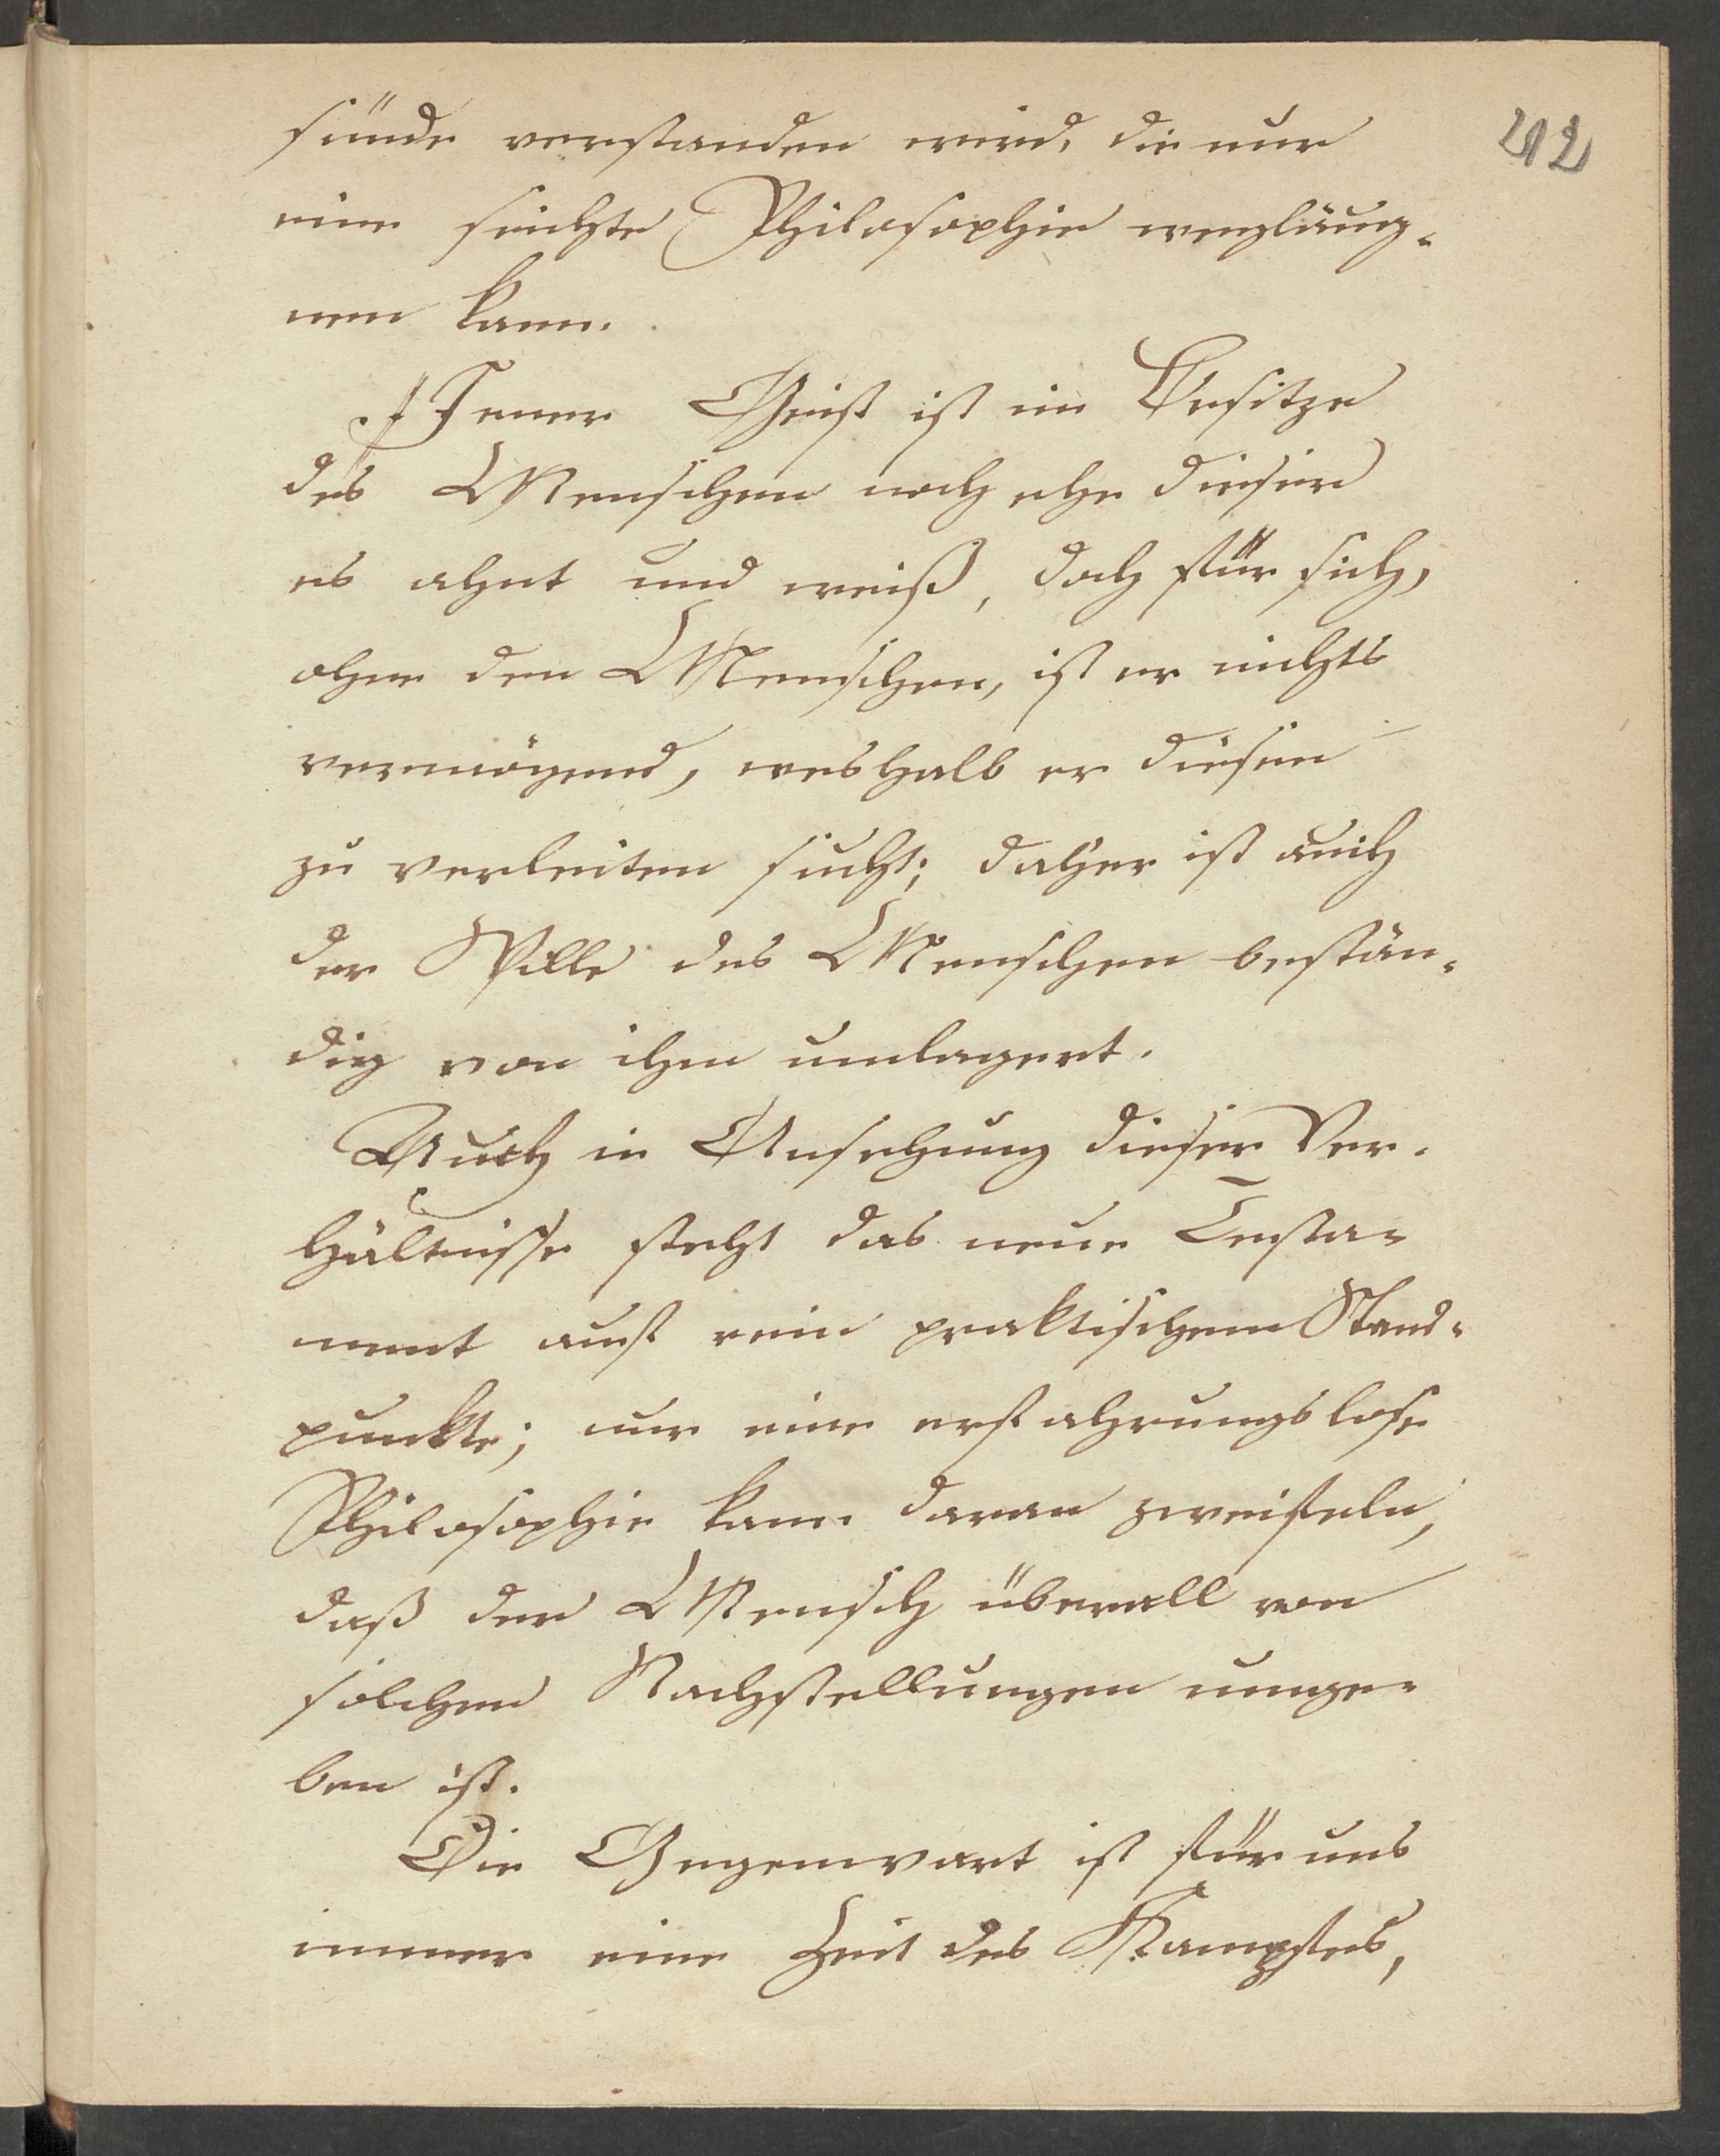 212
sünde verstanden wird, die nur
eine seichte Philosophie wegläug-
nen kann.
Jener Geist ist im Besitze
des Menschen noch ehe dieser
es ahnt und weiß, doch für sich,
ohne den Menschen, ist er nichts
vermögend, weshalb er diesen
zu verleiten sucht; daher ist auch
der Wille des Menschen bestän-
dig von ihm umlagert.
Auch in Ansehung dieser Ver-
hältnisse steht das neue Testa-
ment auf rein praktischem Stand-
punkte; nur eine erfahrungslose
Philosophie kann daran zweifeln,
daß der Mensch überall von
solchen Nachstellungen umge-
ben ist.
Die Gegenwart ist für uns
immer eine Zeit des Kampfes,